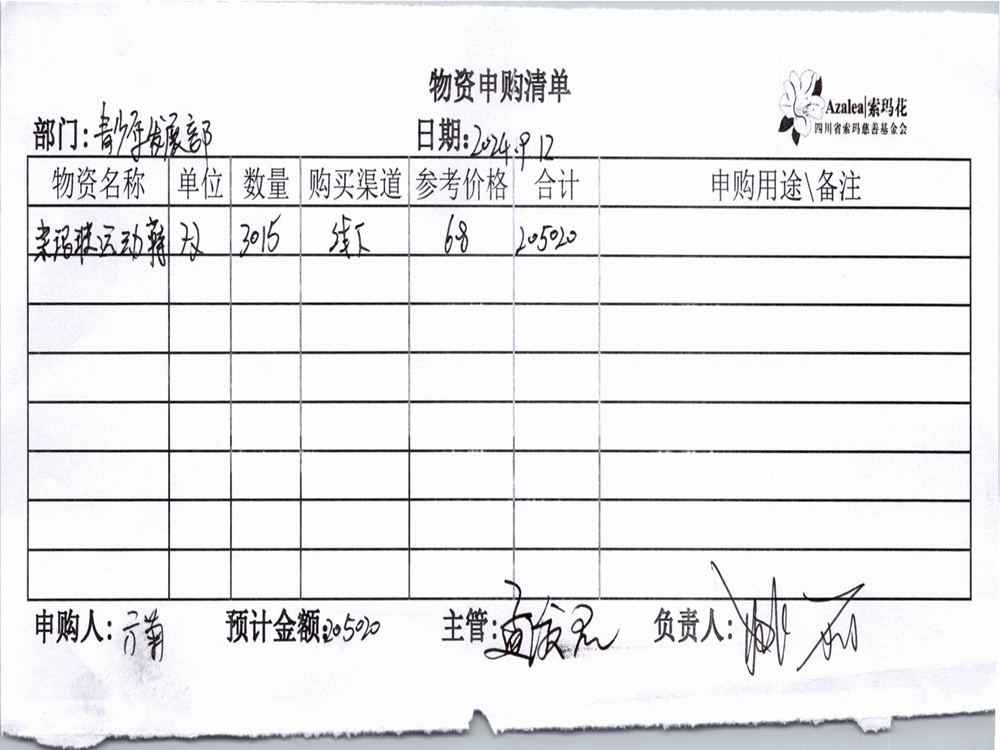 物资申购清单
Azalea|索玛花
四川省索玛慈善基金会
部门:青少年发展部 日期:2024.9.12
物资名称 单位 数量 购买渠道 参考价格 合计 申购用途\备注
索玛球运动鞋 双 3015 线下 68 205020
申购人:方菊 预计金额:205020 主管: 负责人: